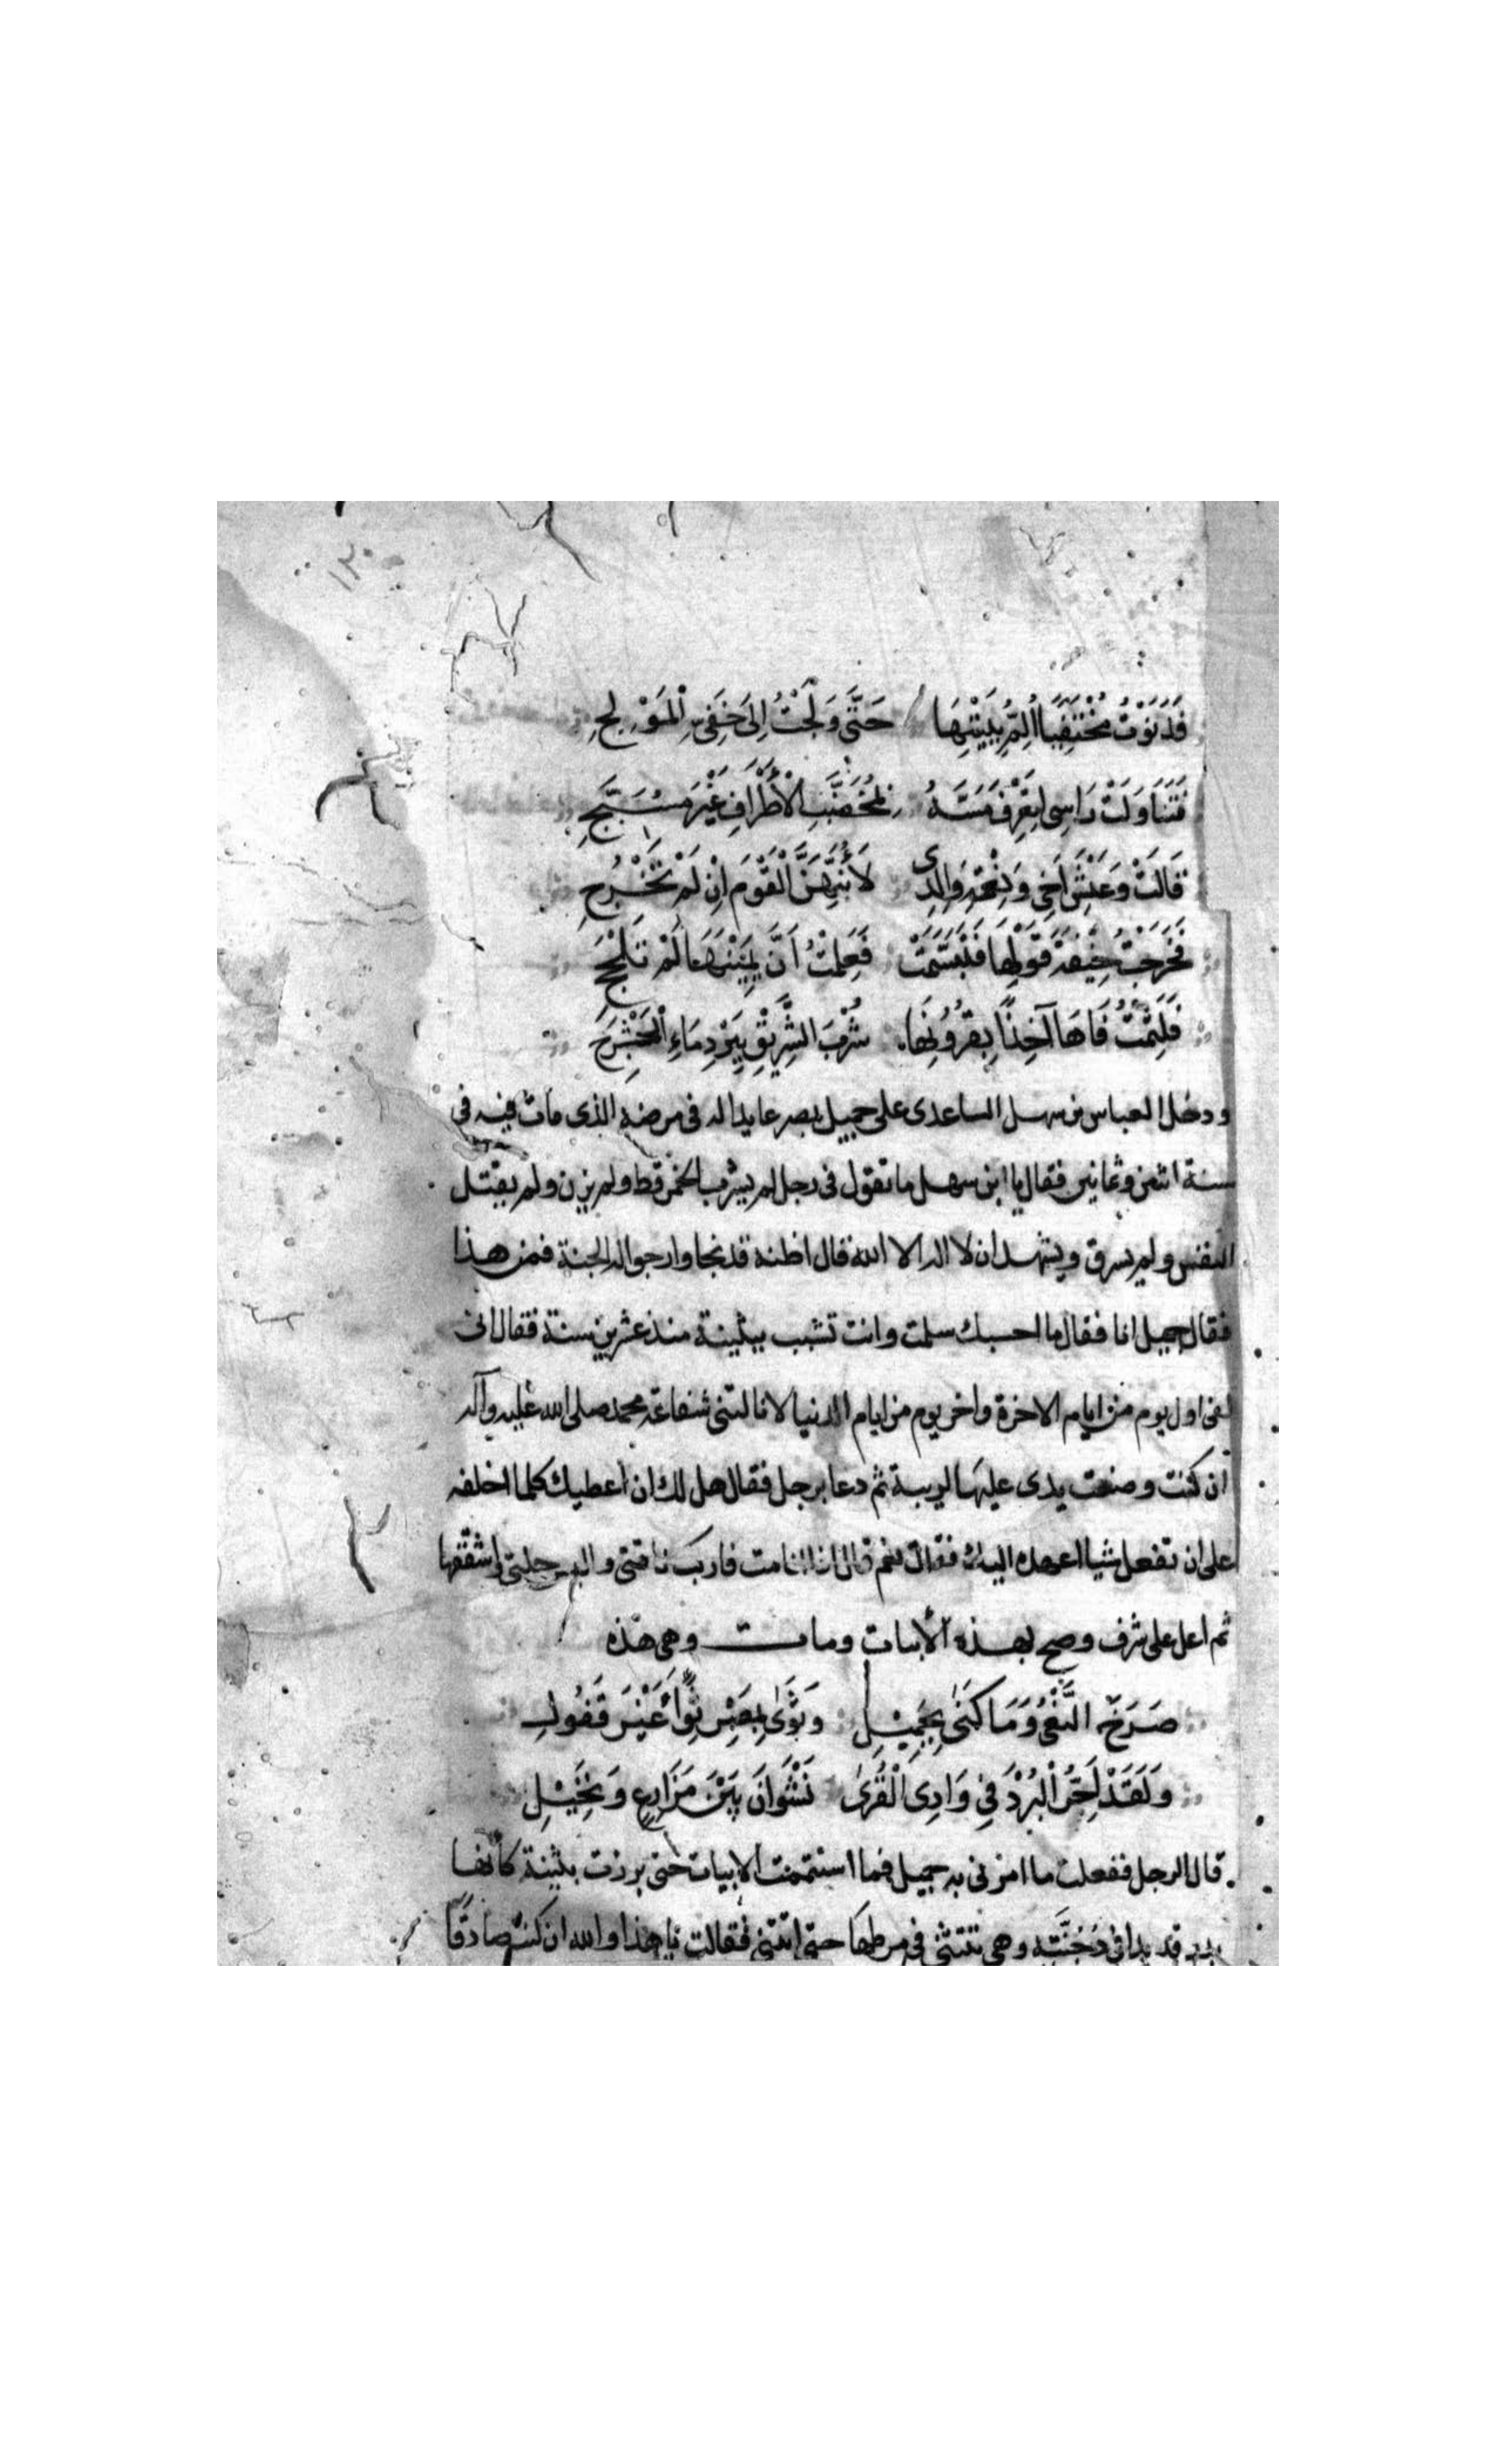 ١٣٠
فَدَنَوْتُ مُخْتَفِيًا أُلِمُّ بِبَيْتِهَا حَتَّى وَلَجْتُ اِلَى خَفِىِّ الْمَوْلِجِ
فَتَنَاوَلَتْ رَاسِى لِتَعْرِفَ مَسَّهُ بِمُخَضَّبِ الْأَطْرَافِ غَيْرَ مُشَنَّجِ
قَالَتْ وَعَيْشِ اَخِى وَنِعْمَةِ وَالِدِى لَأُنَبِّهَنَّ الْقَوْمَ اِنْ لَمْ تَخْرُجِ
فَخَرَجْتُ خِيفَةَ قَوْلِهَا فَتَبَسَّمَتْ فَعَلِمْتُ اَنَّ يَمِيْنَهَا لَمْ تَلْجَجِ
فَلَثِمْتُ فَاهَا آخِذًا بِقُرُونِهَا شُرْبَ الشَّرِيْقِ بِبَرْدِ مَاءِ الْحَشْرَجِ
ودخل العباس بن سهل الساعدى على جميل بمصر عايدا له فى مرضه الذى مات فيه فى
سنة اثنين وثمانين فقال يا ابن سهل ما تقول فى رجل لم يشرب الخمر قط ولم يزن ولم يقتل
النفس ولم يسرق ويشهد ان لا اله الا الله قال اظنه قد نجا وارجو له الجنة فمن هذا
فقال جميل انا فقال ما احسبك سلمت وانت تشبب ببثينة منذ عشرين سنة فقال انى
لفى اول يوم من ايام الاخرة واخر يوم من ايام الدنيا لا نالتنى شفاعة محمد صلى الله عليه وآله
ان كنت وضعت يدى عليها لريبة ثم دعا برجل فقال هل لك ان اعطيك كلما اخلفه
على ان تفعل شيا اعهده اليك فقال نعم قال اذا انا مت فاركب ناقتى والبس حلتى واشققها
ثم اعل على شرف وصح بهذه الأبيات ومات وهى هذه
صَرَخَ النَّعْىُ وَمَا كَنَى بِجَمِيْلِ وَثَوَى بِمِصْرِ ثَوَاً غَيْرَ قَفُولِ
وَلَقَدْ اَجُرُّ الْبُرْدَ فِى وَادِى الْقُرَى نَشْوَانَ بَيْنَ مَزَارِعٍ وَنَخِيْلِ
قال الرجل ففعلت ما امرنى به جميل فما استتممت الابيات حتى برزت بثينة كأنها
بدر قد بدا فى دُجُنَّته وهى تتثنى فى مرطها حتى اتتنى فقالت يا هذا والله ان كنت صادقًا